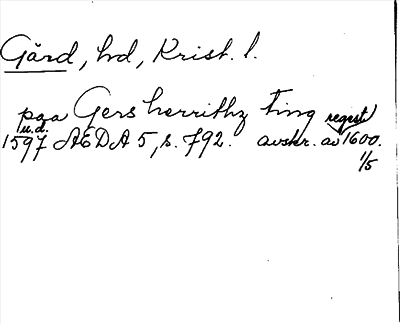 Gärd, hd, Krist. l.
paa Gers herrithz Ting regest
u.d.
1597 AEDA 5, s. 792. avskr. av 1600.
1/5